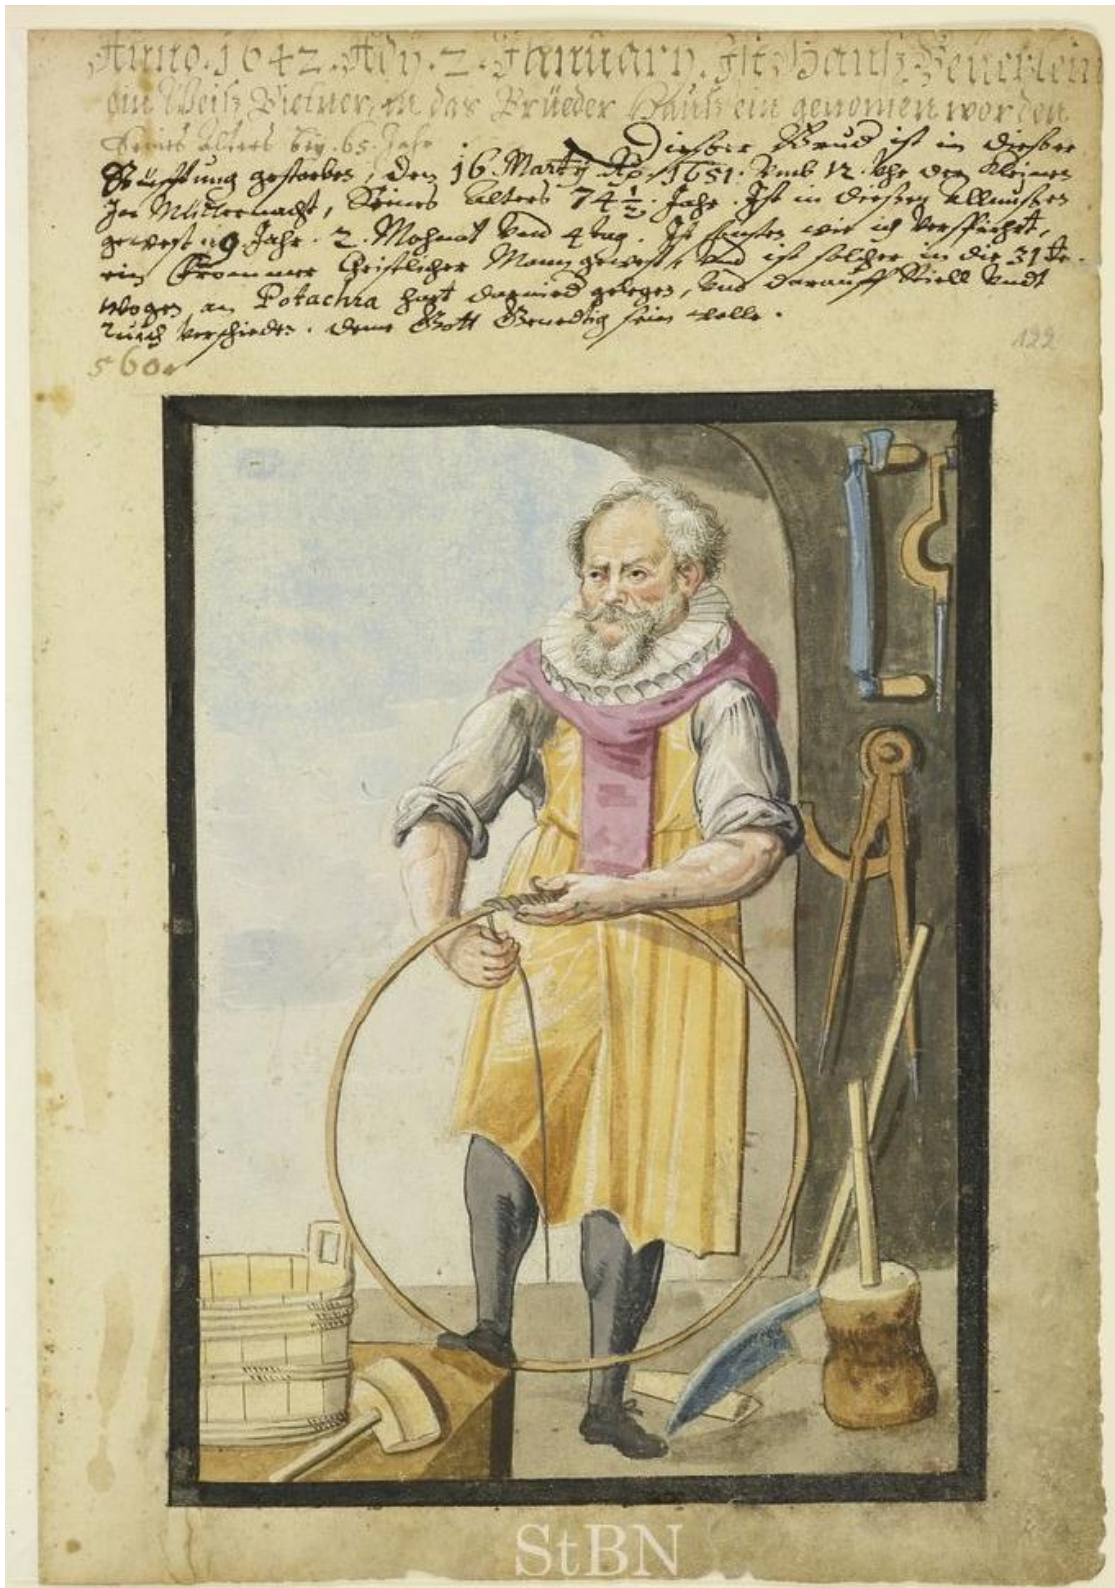 Anno. 1642. Ady. 2. Januarÿ. Ist Hanß Beuerlein
ein Weiß Pietner, in das Brüeder Hauß ein genomen worden
Seines alters beÿ. 65. Jahr
Dießer Brud ist in dießer
gestorben, den 16 Martÿ Aō. 1651. Vmb 12. Vhr der kleinen
Zu Mitternacht, Seines alters 74 1/2. Jahr. Ist in dießen allmußen
gewest. 9. Jahr. 2. Mohnat Vnd 4 tag. wie ich
ein frommer Christlicher Mann gewest, Vnd ist solcher in die 31
wogen, an Potachra hart gelegen, Vnd darauff Stiell Vndt
Verschieden. deme Gott Genedtig sein wolle.
560
122
StBN